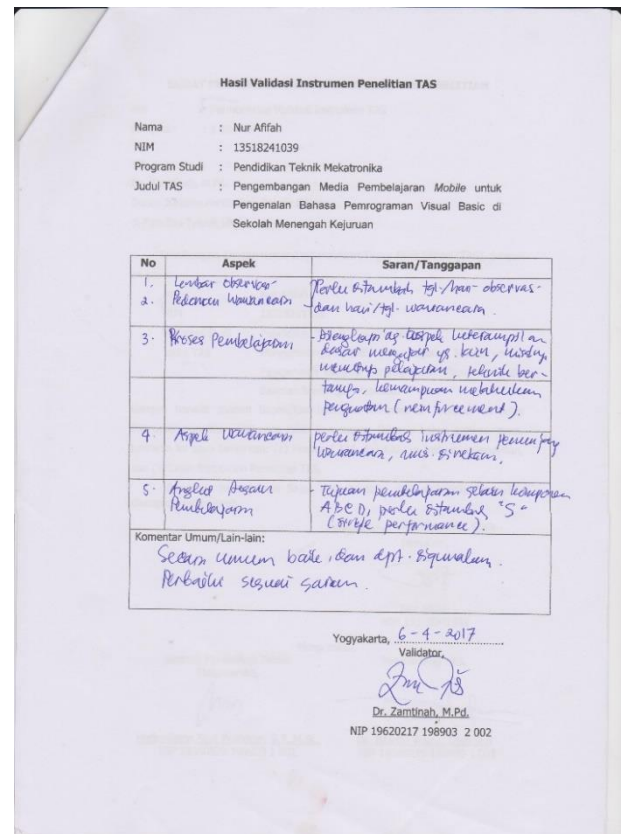 Hasil Validasi Instrumen Penelitian TAS
Nama : Nur Afifah
NIM : 13518241039
Program Studi : Pendidikan Teknik Mekatronika
Judul TAS : Pengembangan Media Pembelajaran Mobile untuk
Pengenalan Bahasa Pemrograman Visual Basic di
Sekolah Menengah Kejuruan
No Aspek Saran/Tanggapan
1. Lembar observasi Perlu ditambah tgl/hari observasi
2. Pedoman Wawancara dan hari/tgl. wawancara.
3. Proses Pembelajaran - dilengkapi dg aspek keterampilan
dasar mengajar yg. lain,
menutup pelajaran, teknik ber-
tanya, kemampuan melakukan
penguatan (reinforcement).
4. Aspek Wawancara perlu ditambah instrumen penunjang
wawancara, direkam.
5. Angket Desain - Tujuan pembelajaran selain komponen
Pembelajaran ABCD, perlu ditambah "S"
performance).
Komentar Umum/Lain-lain:
Secara umum baik, dan dpt. digunakan.
Perbaiki sesuai saran.
Yogyakarta, 6-4-2017
Validator,
Dr. Zamtinah, M.Pd.
NIP 19620217 198903 2 002